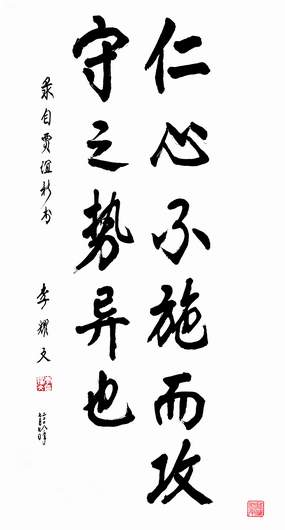 仁心不施而攻
守之势异也
录自贾谊新书
李耀文